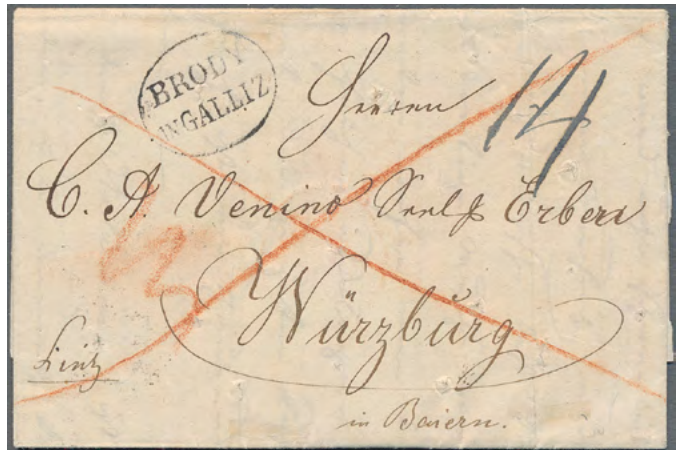 BRODY
IN GALLIZ
14
Herren
C. A. Venino Seel. Erben
Würzburg
Linz
in Baiern.